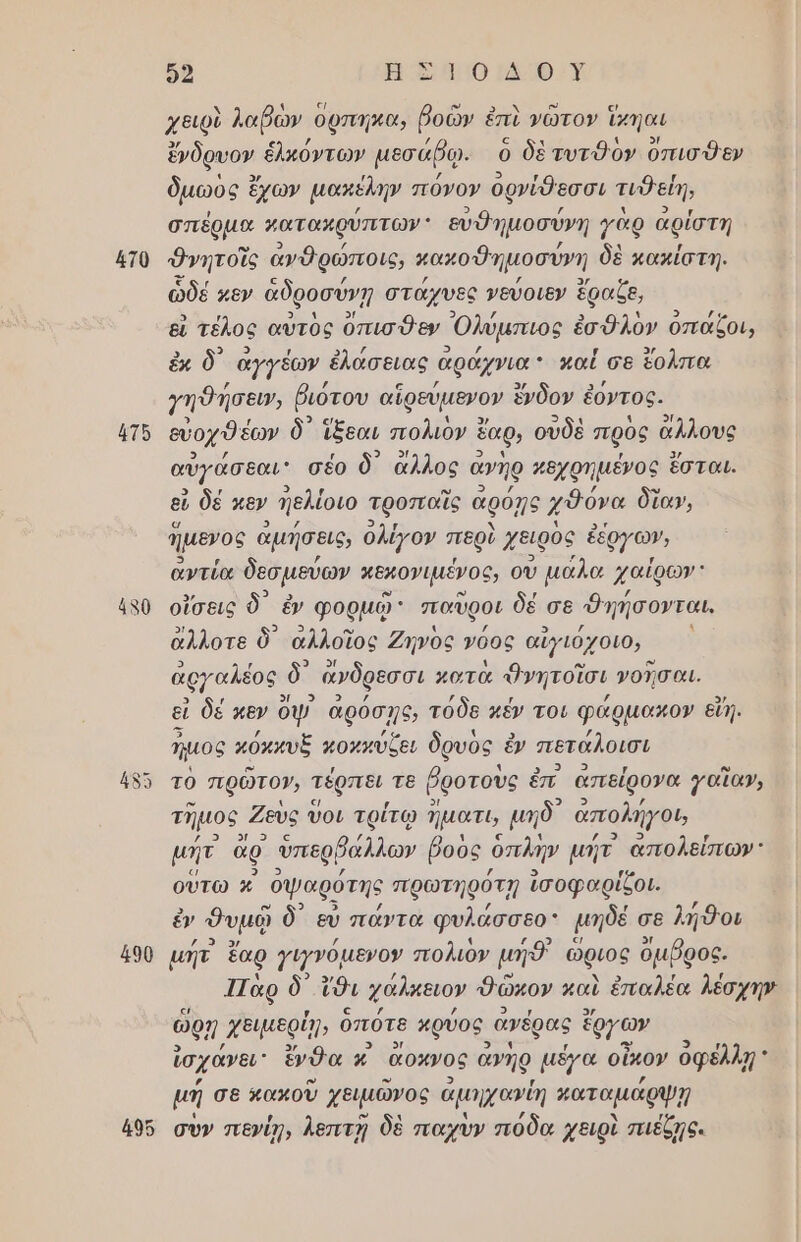 52 ΗΣΙΟΔΟΥ
χειρὶ λαβὼν ὅρπηκα, βοῶν ἐπὶ νῶτον ἵκηαι
ἔνδρυον ἑλκόντων μεσάβῳ. ὁ δὲ τυτθὸν ὄπισθεν
δμωὸς ἔχων μακέλην πόνον ὀρνίθεσσι τιθείη,
σπέρμα κατακρύπτων· εὐθημοσύνη γὰρ ἀρίστη
470 θνητοῖς ἀνθρώποις, κακοθημοσύνη δὲ κακίστη.
ὧδέ κεν ἁδροσύνῃ στάχυες νεύοιεν ἔραζε,
εἰ τέλος αὐτὸς ὄπισθεν Ὀλύμπιος ἐσθλὸν ὀπάζοι,
ἐκ δ᾽ ἀγγέων ἐλάσειας ἀράχνια· καί σε ἔολπα
γηθήσειν, βιότου αἱρεύμενον ἔνδον ἐόντος.
475 εὐοχθέων δ᾽ ἵξεαι πολιὸν ἔαρ, οὐδὲ πρὸς ἄλλους
αὐγάσεαι· σέο δ᾽ ἄλλος ἀνὴρ κεχρημένος ἔσται.
εἰ δέ κεν ἠελίοιο τροπαῖς ἀρόῃς χθόνα δῖαν,
ἥμενος ἀμήσεις, ὀλίγον περὶ χειρὸς ἐέργων,
ἀντία δεσμεύων κεκονιμένος, οὐ μάλα χαίρων·
480 οἴσεις δ᾽ ἐν φορμῷ· παῦροι δέ σε θηήσονται.
ἄλλοτε δ᾽ ἀλλοῖος Ζηνὸς νόος αἰγιόχοιο,
ἀργαλέος δ᾽ ἄνδρεσσι κατὰ θνητοῖσι νοῆσαι.
εἰ δέ κεν ὄψ᾽ ἀρόσῃς, τόδε κέν τοι φάρμακον εἴη.
ἦμος κόκκυξ κοκκύζει δρυὸς ἐν πετάλοισι
485 τὸ πρῶτον, τέρπει τε βροτοὺς ἐπ᾽ ἀπείρονα γαῖαν,
τῆμος Ζεὺς ὕοι τρίτῳ ἤματι, μηδ᾽ ἀπολήγοι,
μήτ᾽ ἄρ᾽ ὑπερβάλλων βοὸς ὁπλὴν μήτ᾽ ἀπολείπων·
οὕτω κ᾽ ὀψαρότης πρωτηρότῃ ἰσοφαρίζοι.
ἐν θυμῷ δ᾽ εὖ πάντα φυλάσσεο· μηδέ σε λήθοι
490 μήτ᾽ ἔαρ γιγνόμενον πολιὸν μήθ᾽ ὥριος ὄμβρος.
Πὰρ δ᾽ ἴθι χάλκειον θῶκον καὶ ἐπαλέα λέσχην
ὥρῃ χειμερίῃ, ὁπότε κρύος ἀνέρας ἔργων
ἰσχάνει· ἔνθα κ᾽ ἄοκνος ἀνὴρ μέγα οἶκον ὀφέλλῃ·
μή σε κακοῦ χειμῶνος ἀμηχανίη καταμάρψῃ
495 σὺν πενίῃ, λεπτῇ δὲ παχὺν πόδα χειρὶ πιέζῃς.